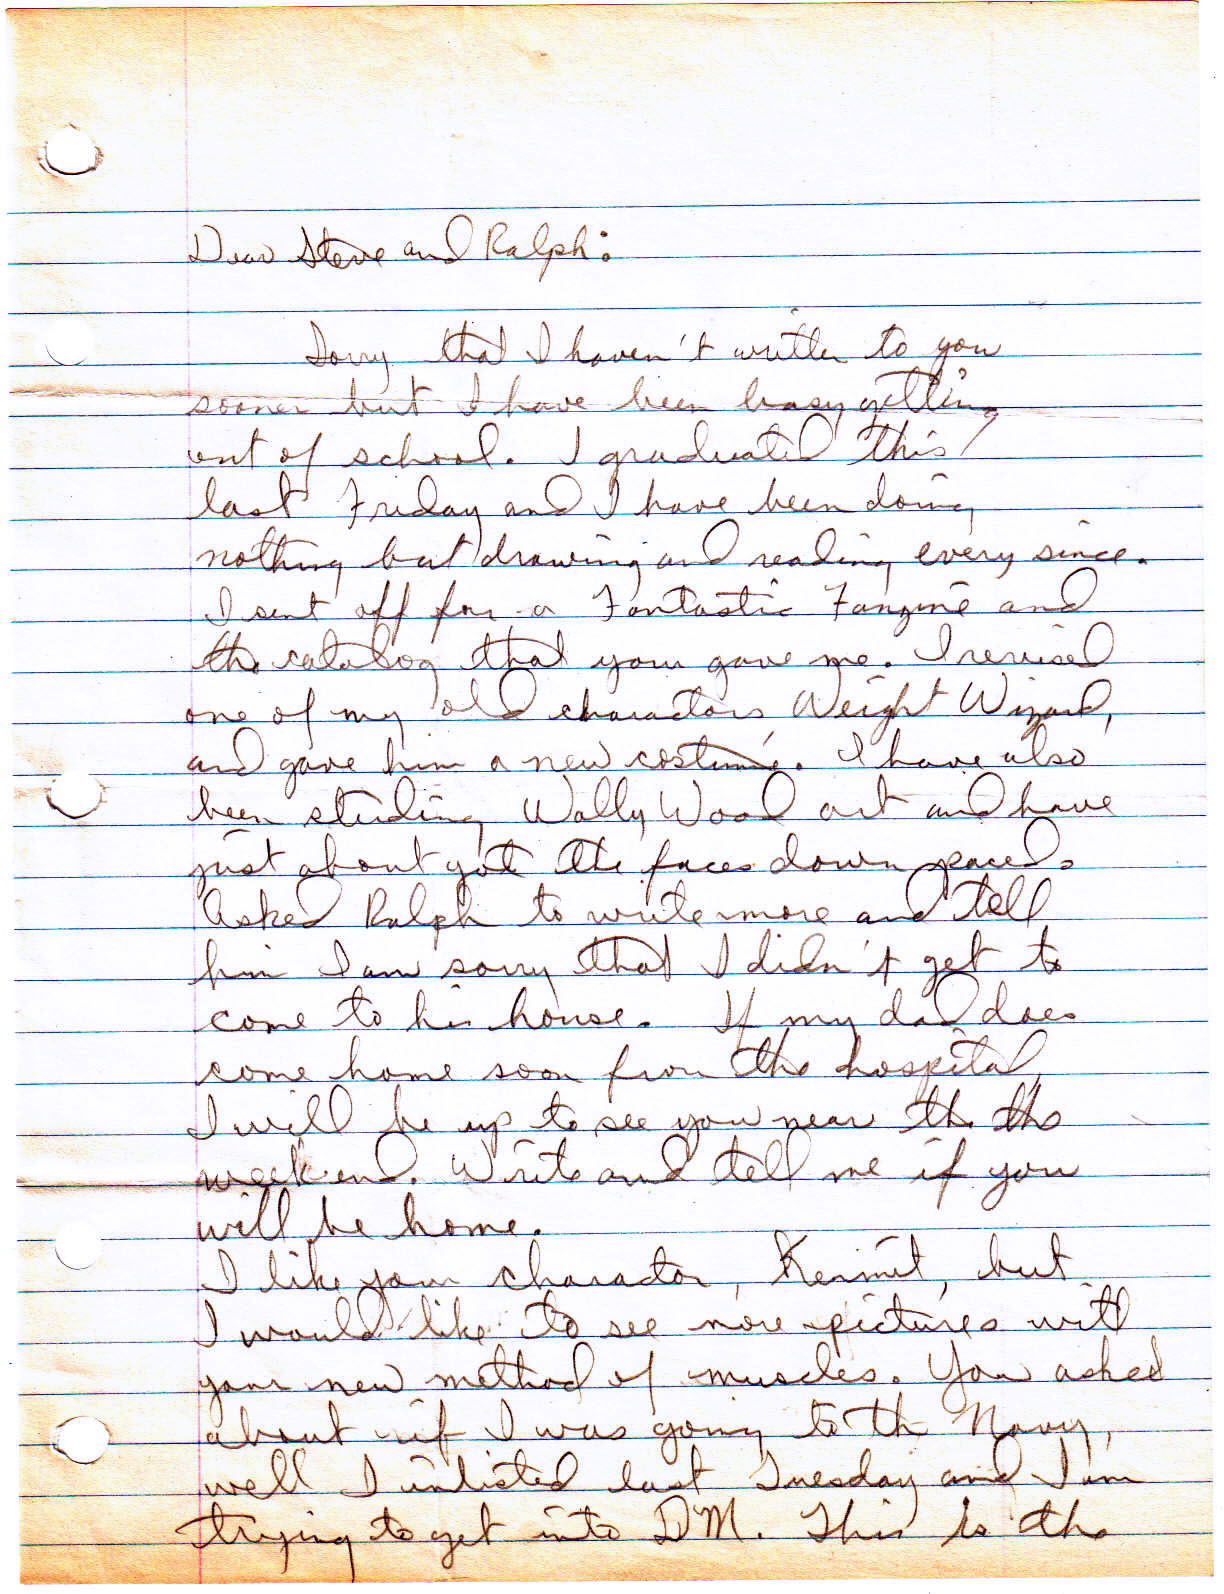 Dear Steve and Ralph:
Sorry that I haven't written to you
sooner but I have been busy getting
out of school. I graduated this
last Friday and I have been doing
nothing but drawing and reading every since.
I sent off for a Fantastic Fanzine and
the catalog that you gave me. I revised
one of my old charactors, Weight Wizard,
and gave him a new costume. I have also
been studing Wally Wood art and have
just about got the faces down paced.
Asked Ralph to write more and tell
him I am sorry that I didn't get to
come to his house. If my dad does
come home soon from the hospital,
I will be up to see you near the the
weekend. Write and tell me if you
will be home.
I like your charactor, Kermit, but
I would like to see more pictures with
your new method of muscles. You asked
about if I was going to th Navy,
well I inlisted last Tuesday and I am
trying to get into DM. This is the